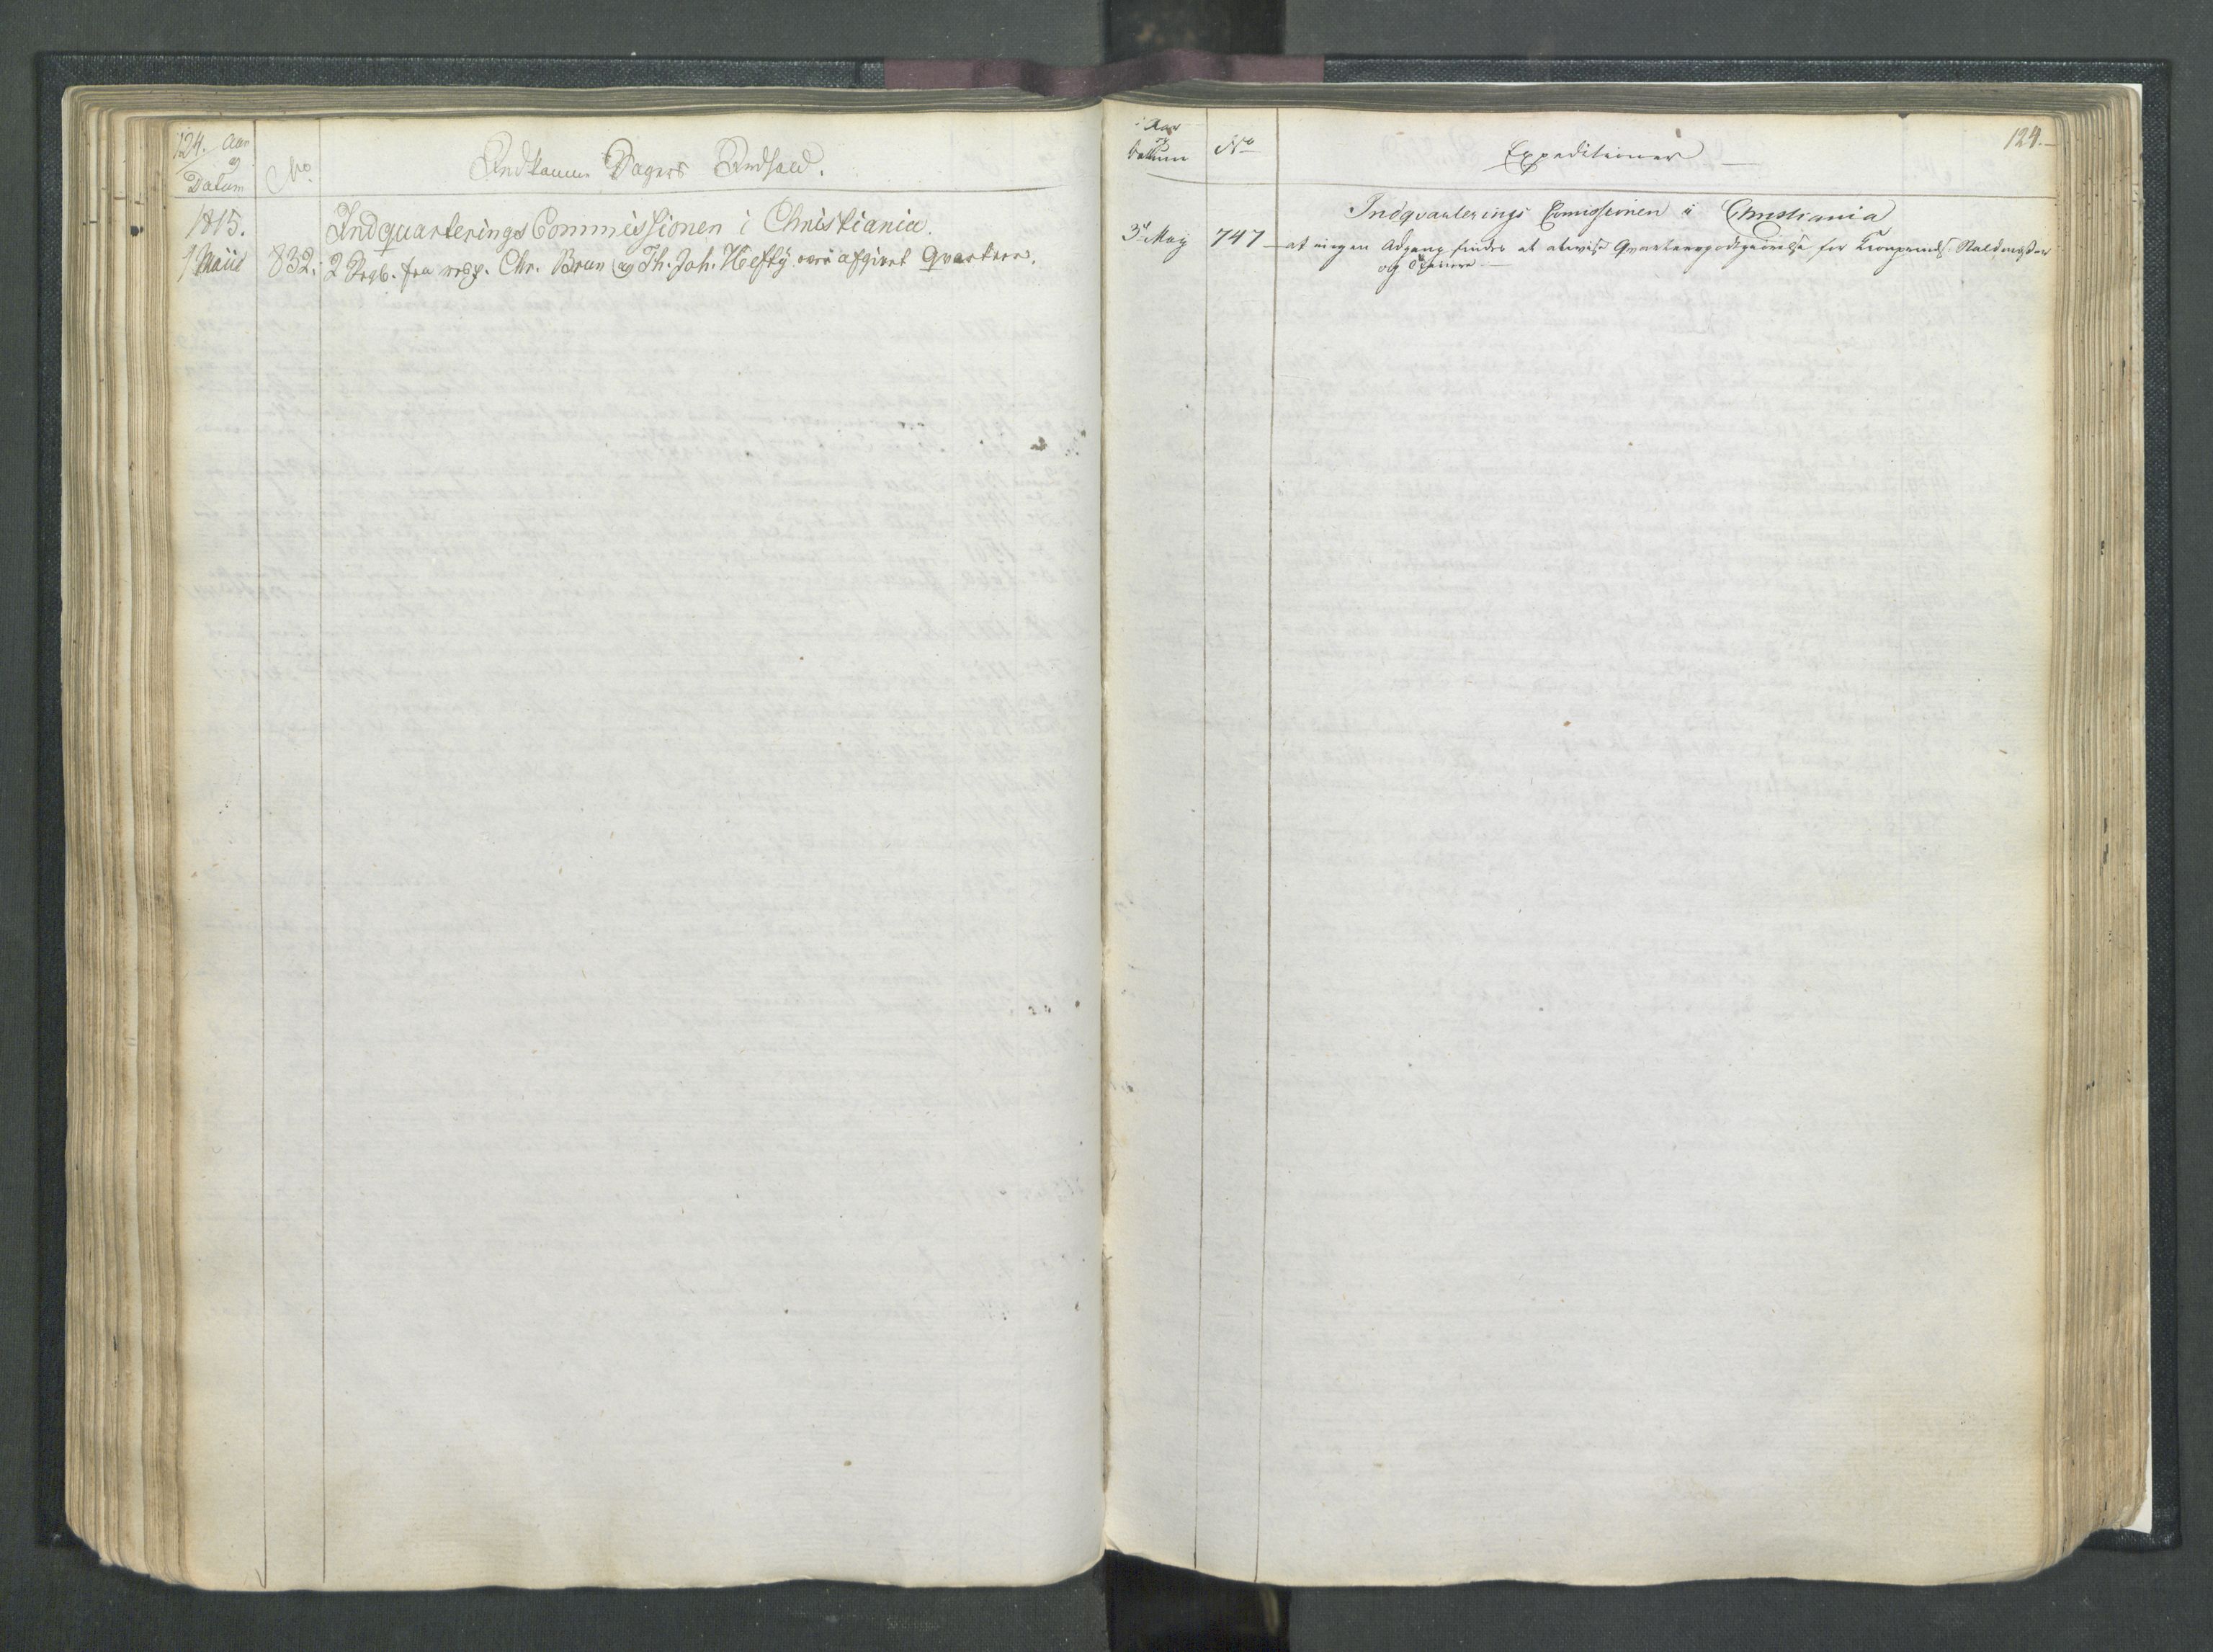 124. Aar
og
Datum
No.
Indkomne Sagers Indhold.
1815.
IndqvarteringsCommissionen i Christiania.
9 Maii
832.
2 fra resp. Chr. Brun og Th. Joh. Hefty afgivet Qvarteer.
Aar
og
Datum
No
Expeditioner
124.
Indqvarterings Comissionen i Christiania
3 Maij
747
at ingen Adgang findes at Qvarteergodtgiørelse for Kronprinds Staldmester
og Tienere